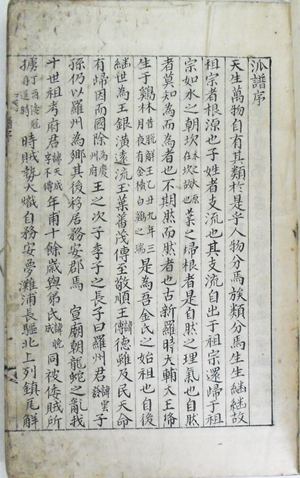 派譜序
天生萬物自有其類於是乎人物分焉族類分焉生生継継故
祖宗者根源也子姓者支流也其支流自出于祖宗還歸于祖
宗如水之朝坎葉之歸根者是自然之理氣也自然
者莫知為而為者也不期然而然者也古新羅時大輔大王降
生于鷄林是為吾金氏之始祖也自後
継世為王銀潢遠流王葉蕃茂傳至敬順王德雖及民天命
有歸因而國除王之次子季子之長子曰羅州君子
孫仍以羅州為鄉其後移居務安郡焉 宣廟朝龍蛇之亂我
十世祖考府君年甫十餘歲與弟氏同被倭賊所
擄時賊勢火熾自務安夢灘浦長驅北上列鎮瓦解